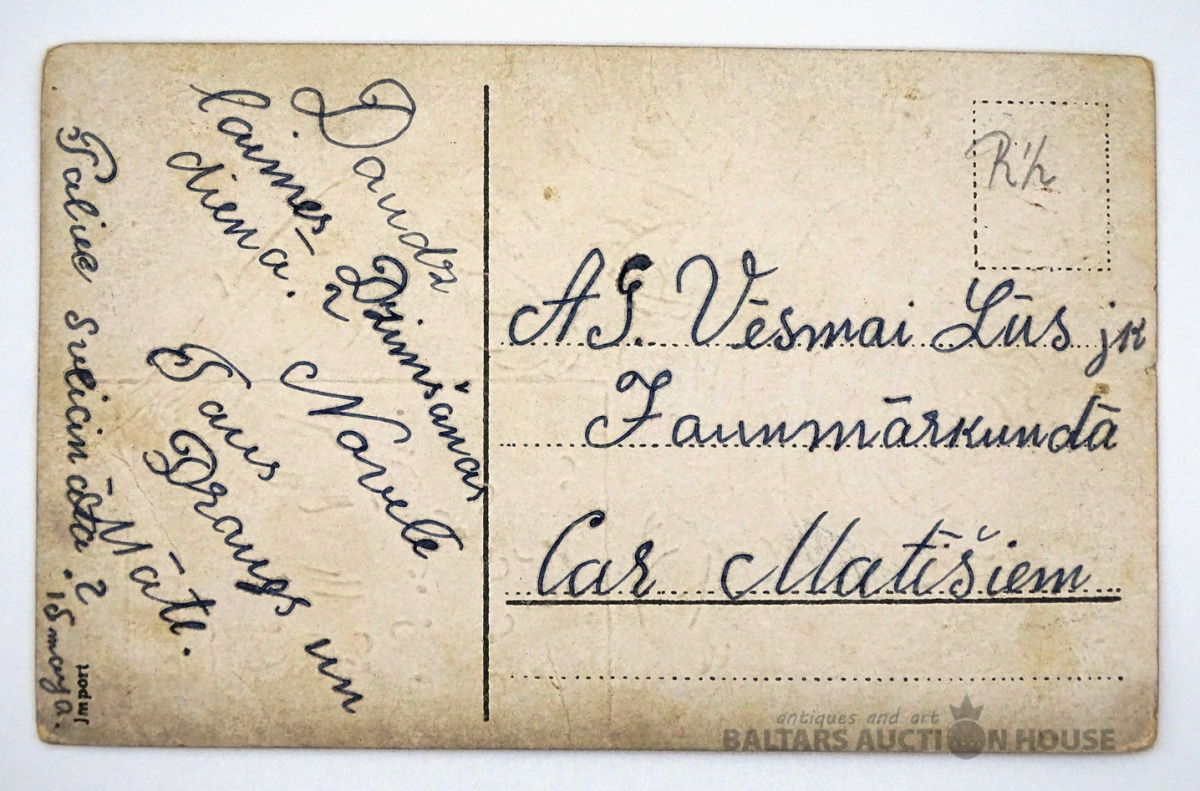 Daudz
laimes 2 Dzimšanas
dienā.
Novēlē
Tavs
Draugs un
Māte.
Paliec Sveicināta. 2
15 maya.
Import
AG. Vēsmai Lūs jk
Jaunmārkundā
Car Matīšiem
antiques and art
BALTARS AUCTION HOUSE